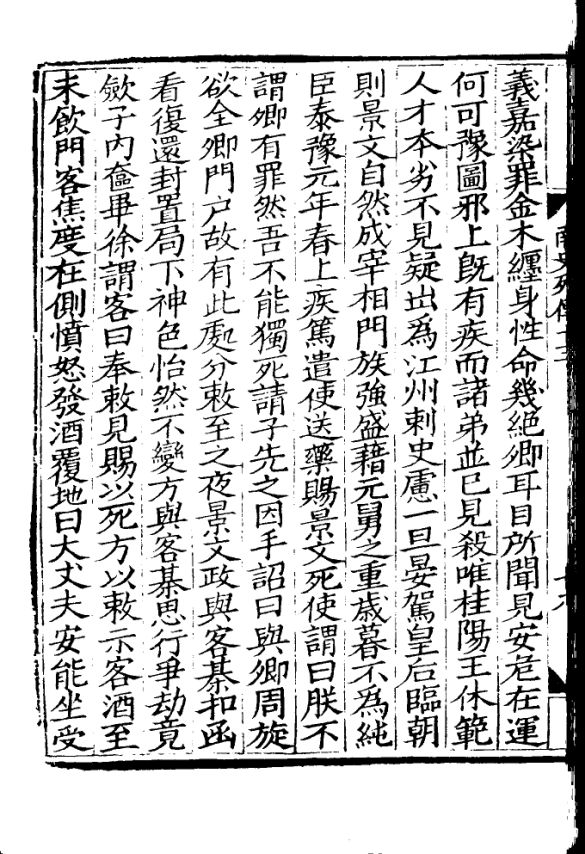 義嘉染罪金木纏身性命幾絕卿耳目所聞見安危在運
何可豫圖邪上旣有疾而諸弟並已見殺唯桂陽王休範
人才本劣不見疑出爲江州刺史慮一旦晏駕皇后臨朝
則景文自然成宰相門族強盛藉元舅之重歲暮不為純
臣泰豫元年春上疾篤遣使送藥賜景文死使謂曰朕不
謂卿有罪然吾不能獨死請子先之因手詔曰與卿周旋
欲全卿門户故有此處分敕至之夜景文政與客棊扣函
看復還封置局下神色怡然不變方與客棊思行爭劫竟
斂子內奩畢徐謂客曰奉敕見賜以死方以敕示客酒至
未飲門客焦度在側憤怒發酒覆地曰大丈夫安能坐受